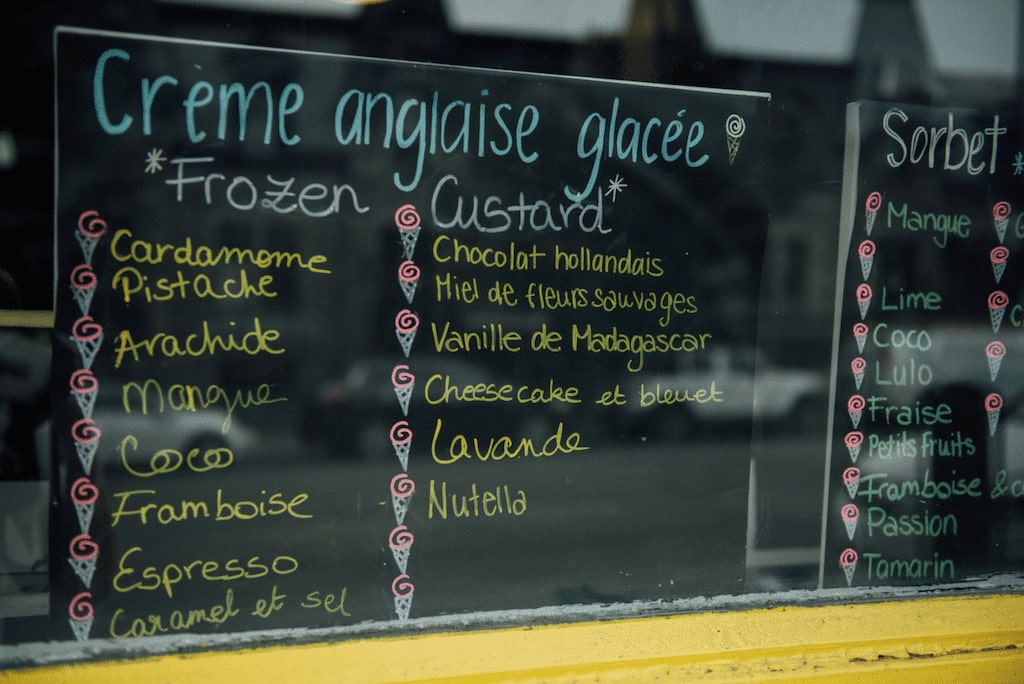 Crème anglaise glacée
*Frozen Custard*
Cardamome
Pistache
Arachide
Mangue
Coco
Framboise
Espresso
Caramel et sel
Chocolat hollandais
Miel de fleurs sauvages
Vanille de Madagascar
Cheesecake et bleuet
Lavande
Nutella
Sorbet *
Mangue
Lime
Coco
Lulo
Fraise
Petits fruits
Framboise &
Passion
Tamarin